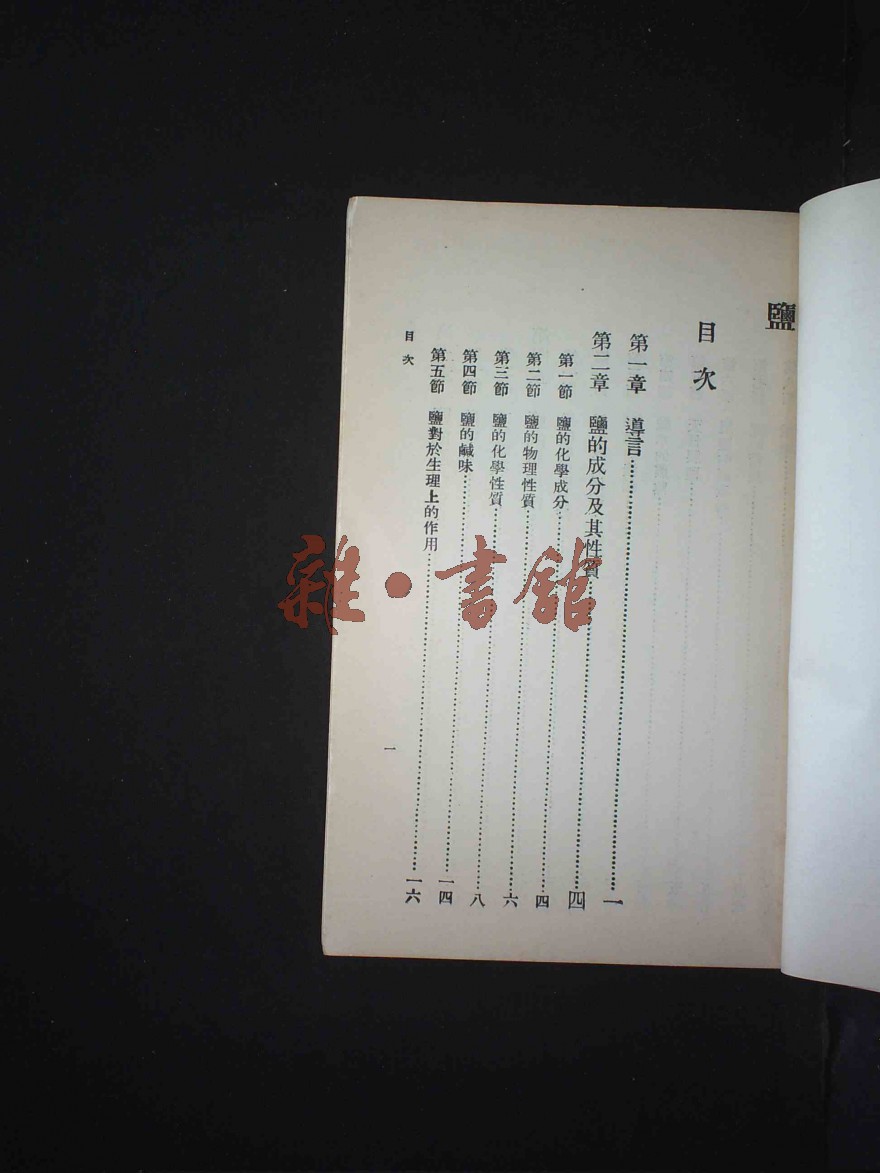 鹽
目次
第一章 導言…………一
第二章 鹽的成分及其性質…………四
第一節 鹽的化學成分…………四
第二節 鹽的物理性質…………六
第三節 鹽的化學性質…………八
第四節 鹽的鹹味…………一四
第五節 鹽對於生理上的作用…………一六
目次
一
雜·書館